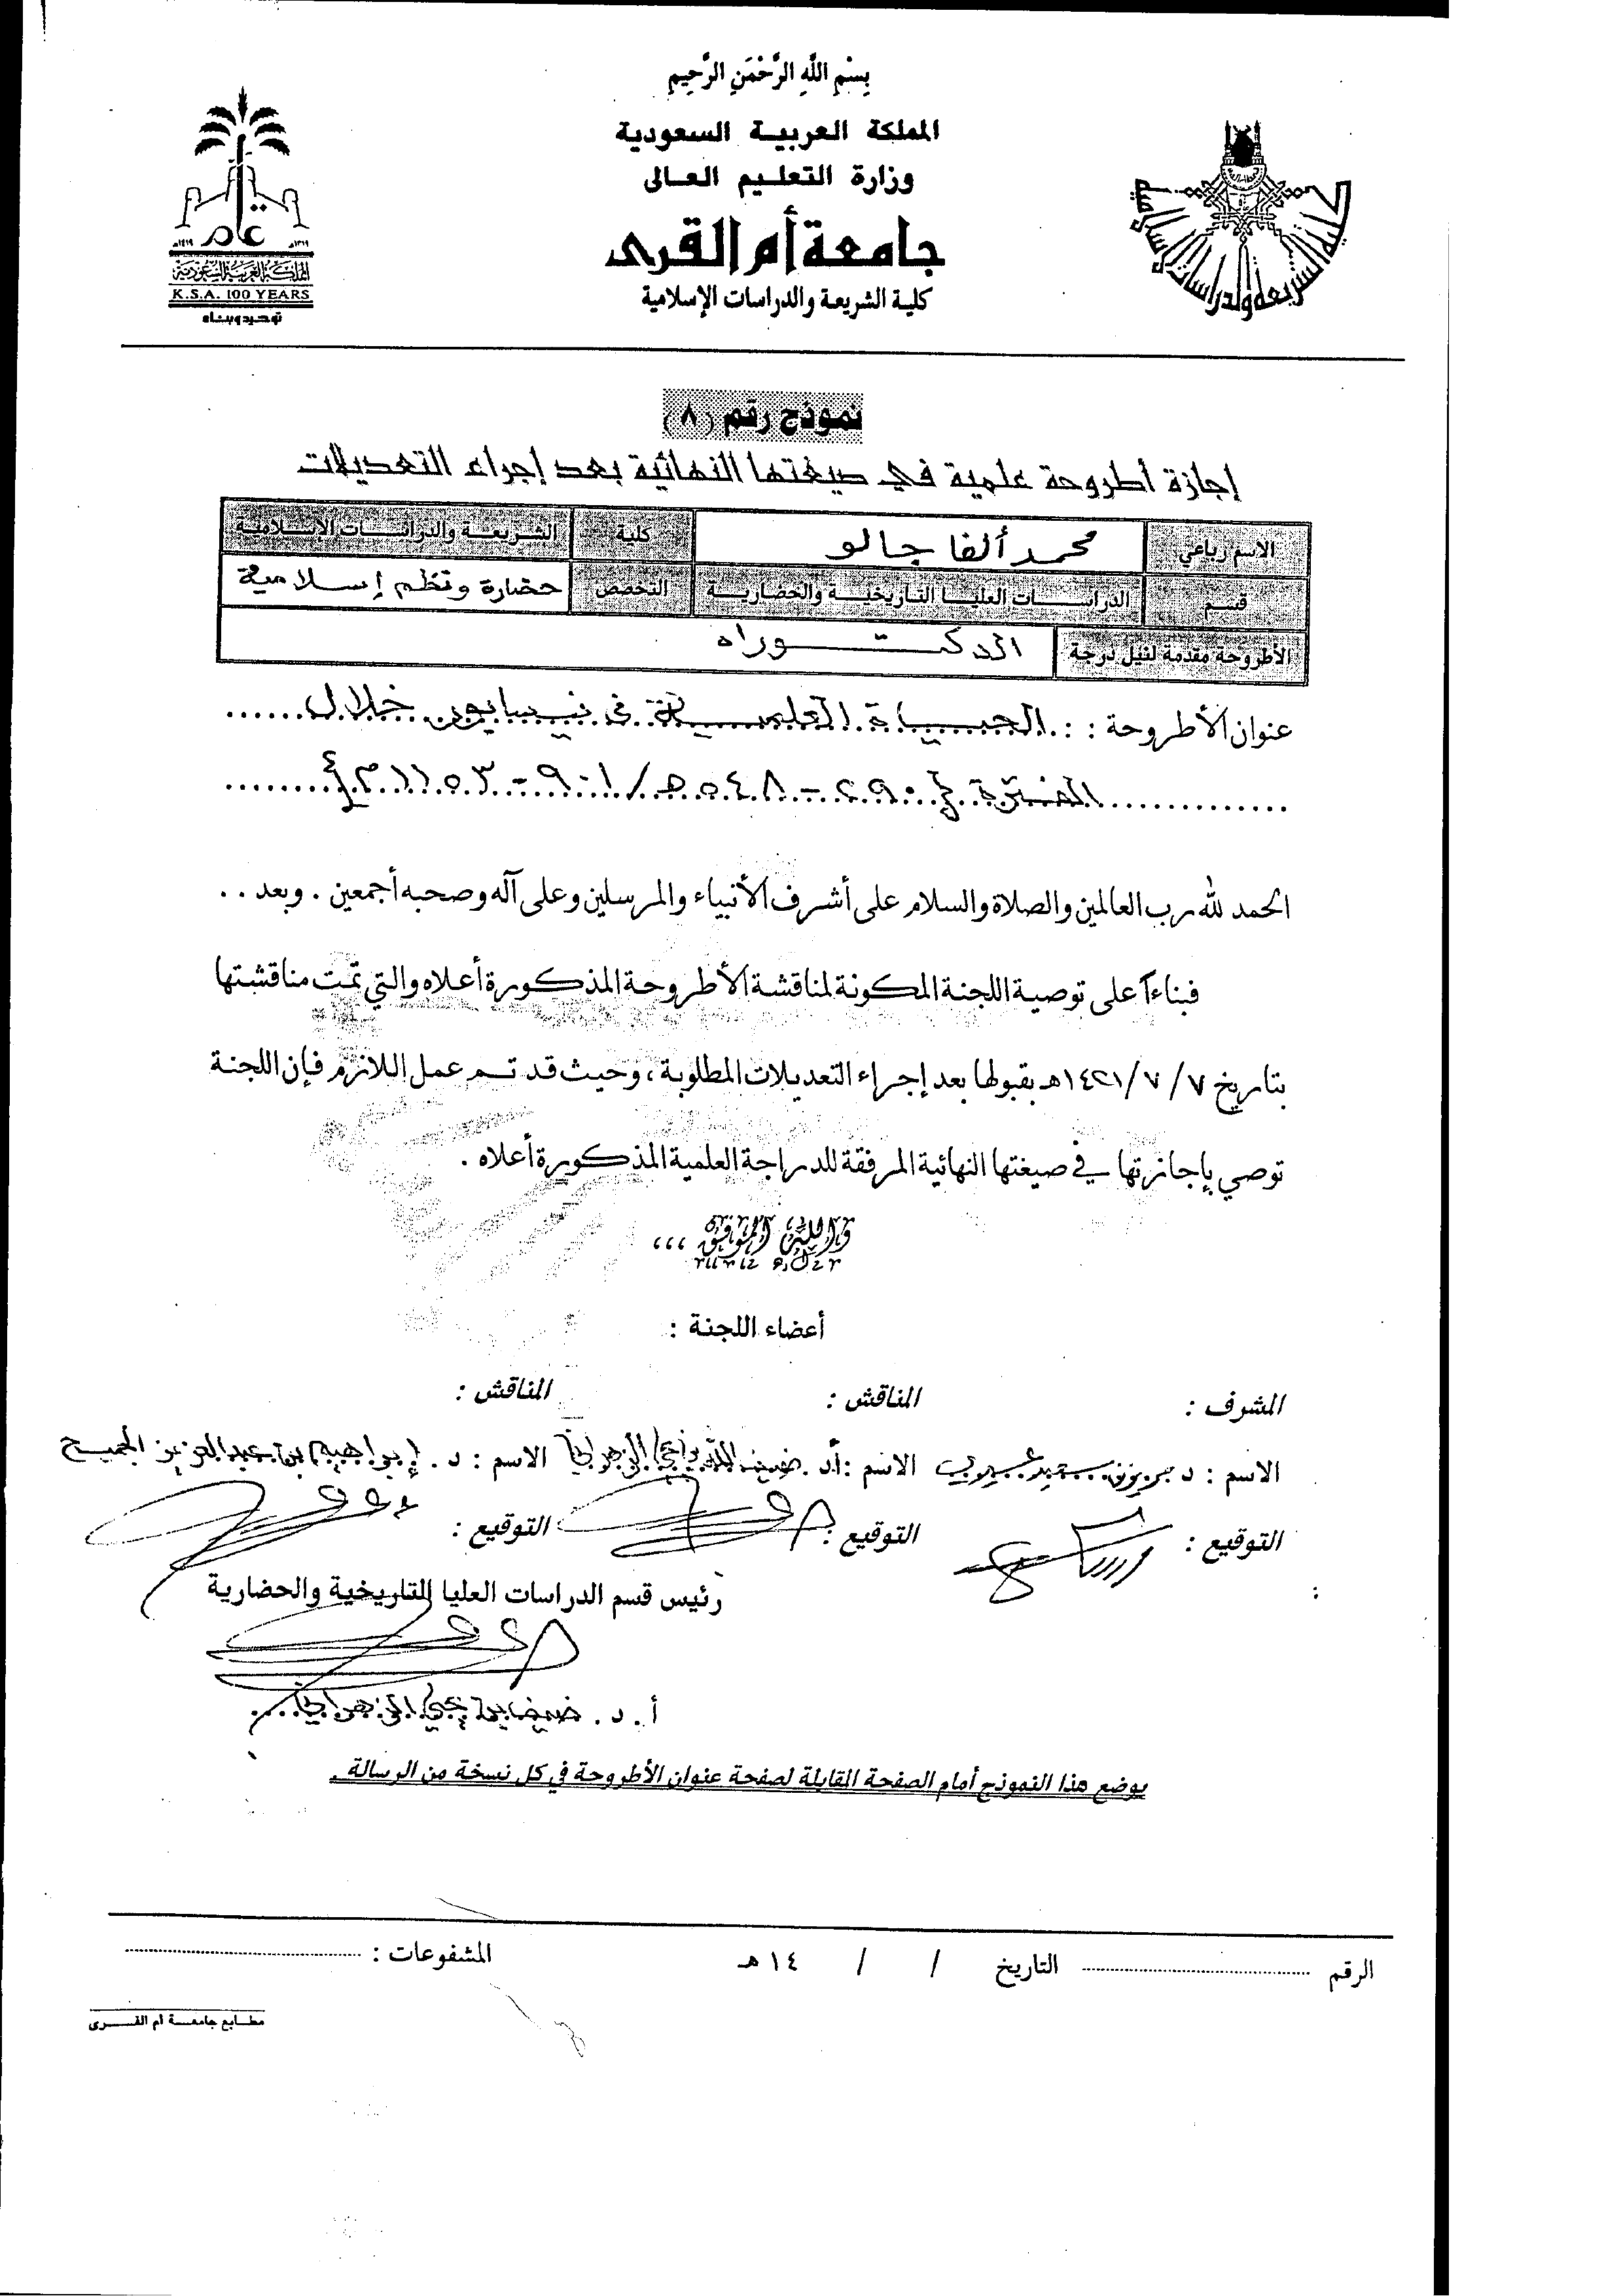 بِسْمِ اللَّهِ الرَّحْمَنِ الرَّحِيمِ
المملكة العربية السعودية
وزارة التعليم العالى
جامعة أم القرى
كلية الشريعة والدراسات الإسلامية
عام
١٣١٩هـ ١٤١٩هـ
المملكة العربية السعودية
K.S.A. 100 YEARS
توحيد وبناء
نموذج رقم (٨)
إجازة أطروحة علمية في صيغتها النهائية بعد إجراء التعديلات
الاسم رباعي محمد ألفا جالو كلية الشريعة والدراسات الإسلامية
قسم الدراسات العليا التاريخية والحضارية التخصص حضارة ونظم إسلامية
الأطروحة مقدمة لنيل درجة الدكتوراه
عنوان الأطروحة : : الحياة العلمية في نيسابور خلال
الفترة {٢٩٠ - ٥٤٨هـ/٩٠١ - ١١٥٣م}
الحمد لله رب العالمين والصلاة والسلام على أشرف الأنبياء والمرسلين وعلى آله وصحبه أجمعين . وبعد . .
فبناءاً على توصية اللجنة المكونة لمناقشة الأطروحة المذكورة أعلاه والتي تمت مناقشتها
بتاريخ ٧ / ٧ /١٤٢١هـ بقبولها بعد إجراء التعديلات المطلوبة ، وحيث قد تم عمل اللازم فإن اللجنة
توصي بإجازتها في صيغتها النهائية المرفقة للدراجة العلمية المذكورة أعلاه .
والله الموفق ،،،
أعضاء اللجنة :
المشرف : المناقش : المناقش :
الاسم : د الاسم : أ.د. ضيف الله بن يحيى الزهراني الاسم : د. إبراهيم بن عبدالعزيز الجميح
التوقيع : التوقيع : التوقيع :
رئيس قسم الدراسات العليا التاريخية والحضارية
أ . د . ضيف الله بن يحيى الزهراني
يوضع هذا النموذج أمام الصفحة المقابلة لصفحة عنوان الأطروحة في كل نسخة من الرسالة .
الرقم التاريخ / / ١٤ هـ المشفوعات :
مطابع جامعة أم القرى